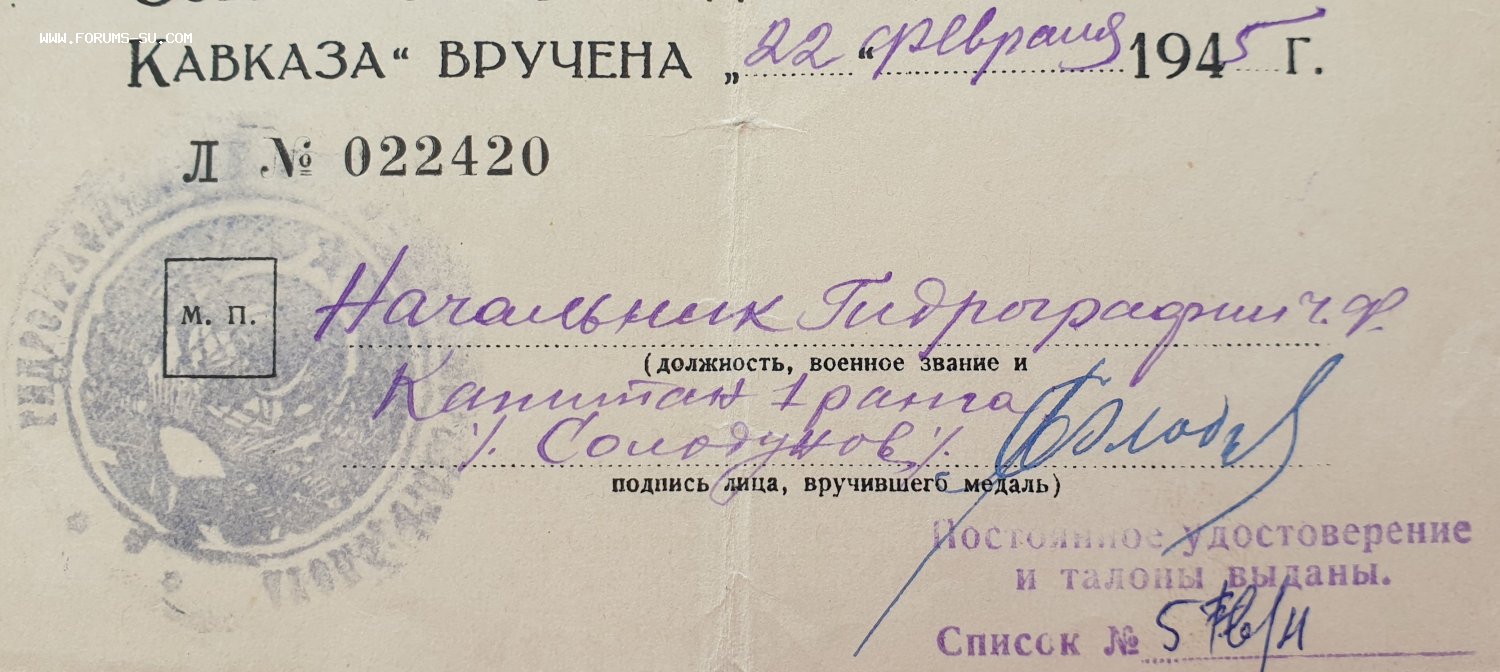 WWW.FORUMS-SU.COM
КАВКАЗА“ ВРУЧЕНА „22“ февраля 1945 Г.
Л № 022420
М. П.
Начальник Гидрографич. Ф.
(должность, военное звание и
Капитан 1 ранга
/. Солодунов /.
подпись лица, вручившего медаль)
Постоянное удостоверение
и талоны выданы.
Список № 5